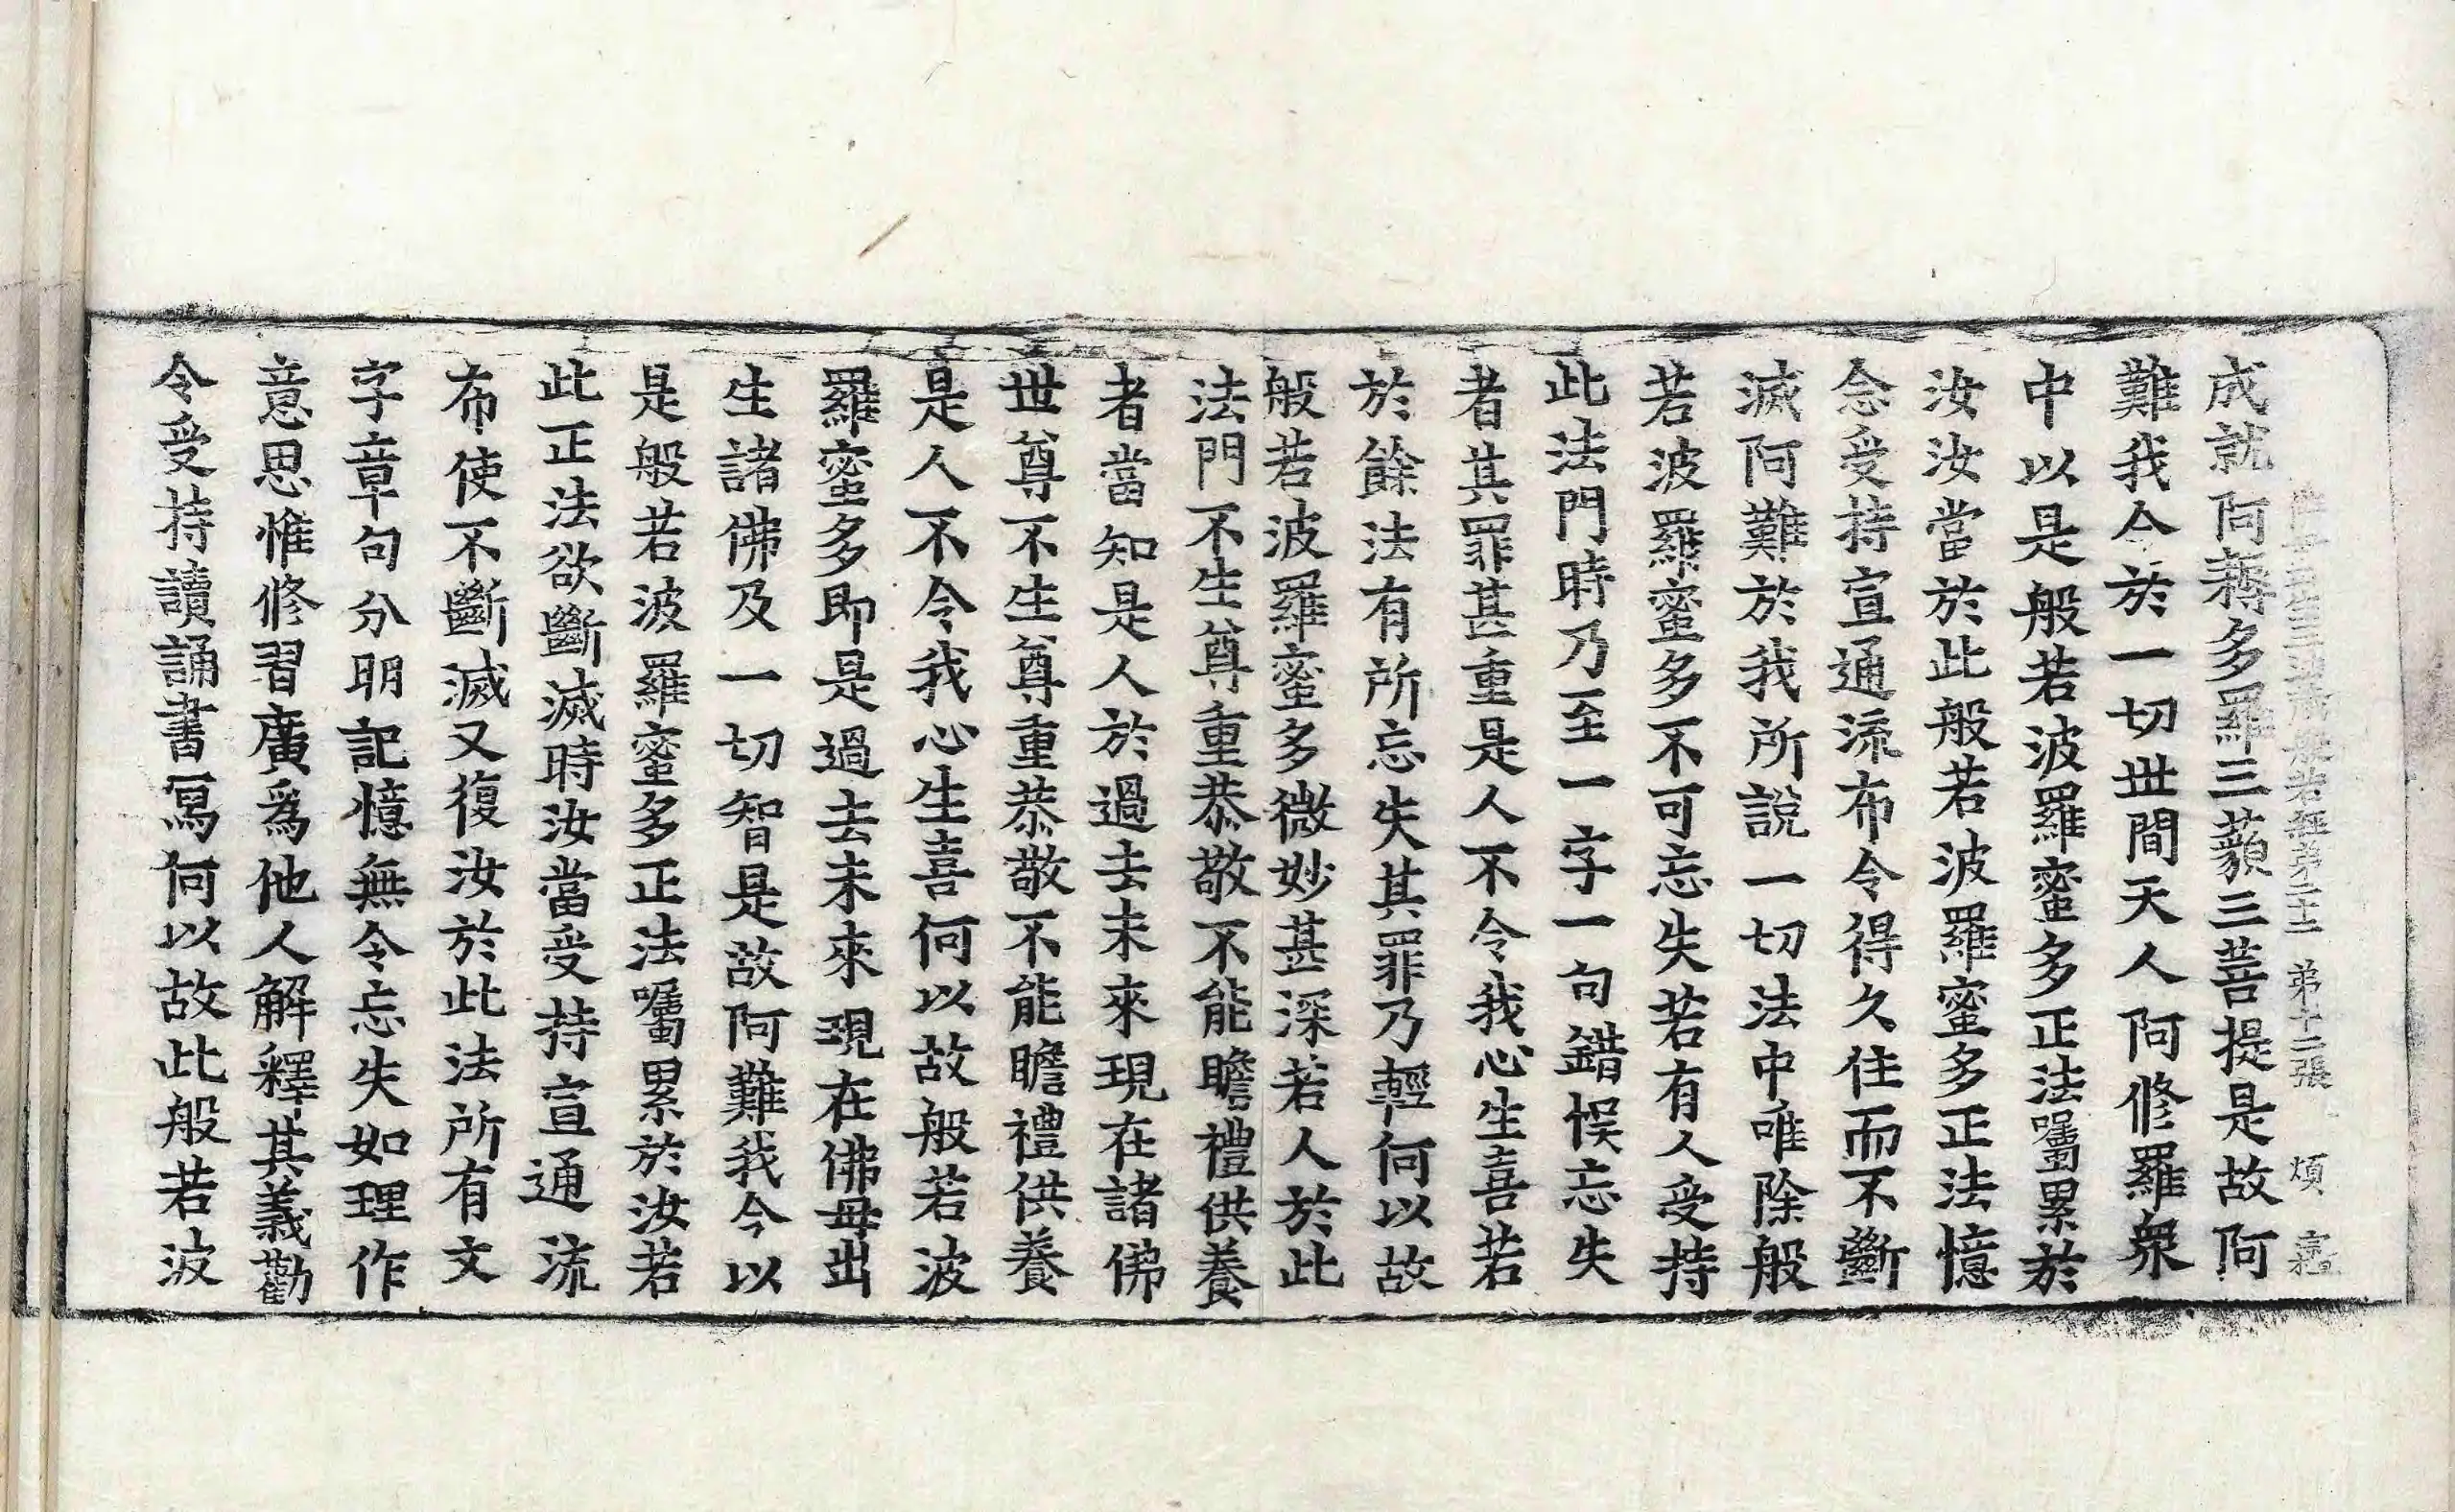 三法藏般若經第二十二 第十二張 煩
成就阿耨多羅三藐三菩提是故阿
難我今於一切世間天人阿修羅衆
中以是般若波羅蜜多正法囑累於
汝汝當於此般若波羅蜜多正法憶
念受持宣通流布令得久住而不斷
滅阿難於我所說一切法中唯除般
若波羅蜜多不可忘失若有人受持
此法門時乃至一字一句錯悞忘失
者其罪甚重是人不令我心生喜若
於餘法有所忘失其罪乃輕何以故
般若波羅蜜多微妙甚深若人於此
法門不生尊重恭敬不能瞻禮供養
者當知是人於過去未來現在諸佛
世尊不生尊重恭敬不能瞻禮供養
是人不令我心生喜何以故般若波
羅蜜多即是過去未來現在佛母出
生諸佛及一切智是故阿難我今以
是般若波羅蜜多正法囑累於汝若
此正法欲斷滅時汝當受持宣通流
布使不斷滅又復汝於此法所有文
字章句分明記憶無令忘失如理作
意思惟修習廣爲他人解釋其義勸
令受持讀誦書寫何以故此般若波